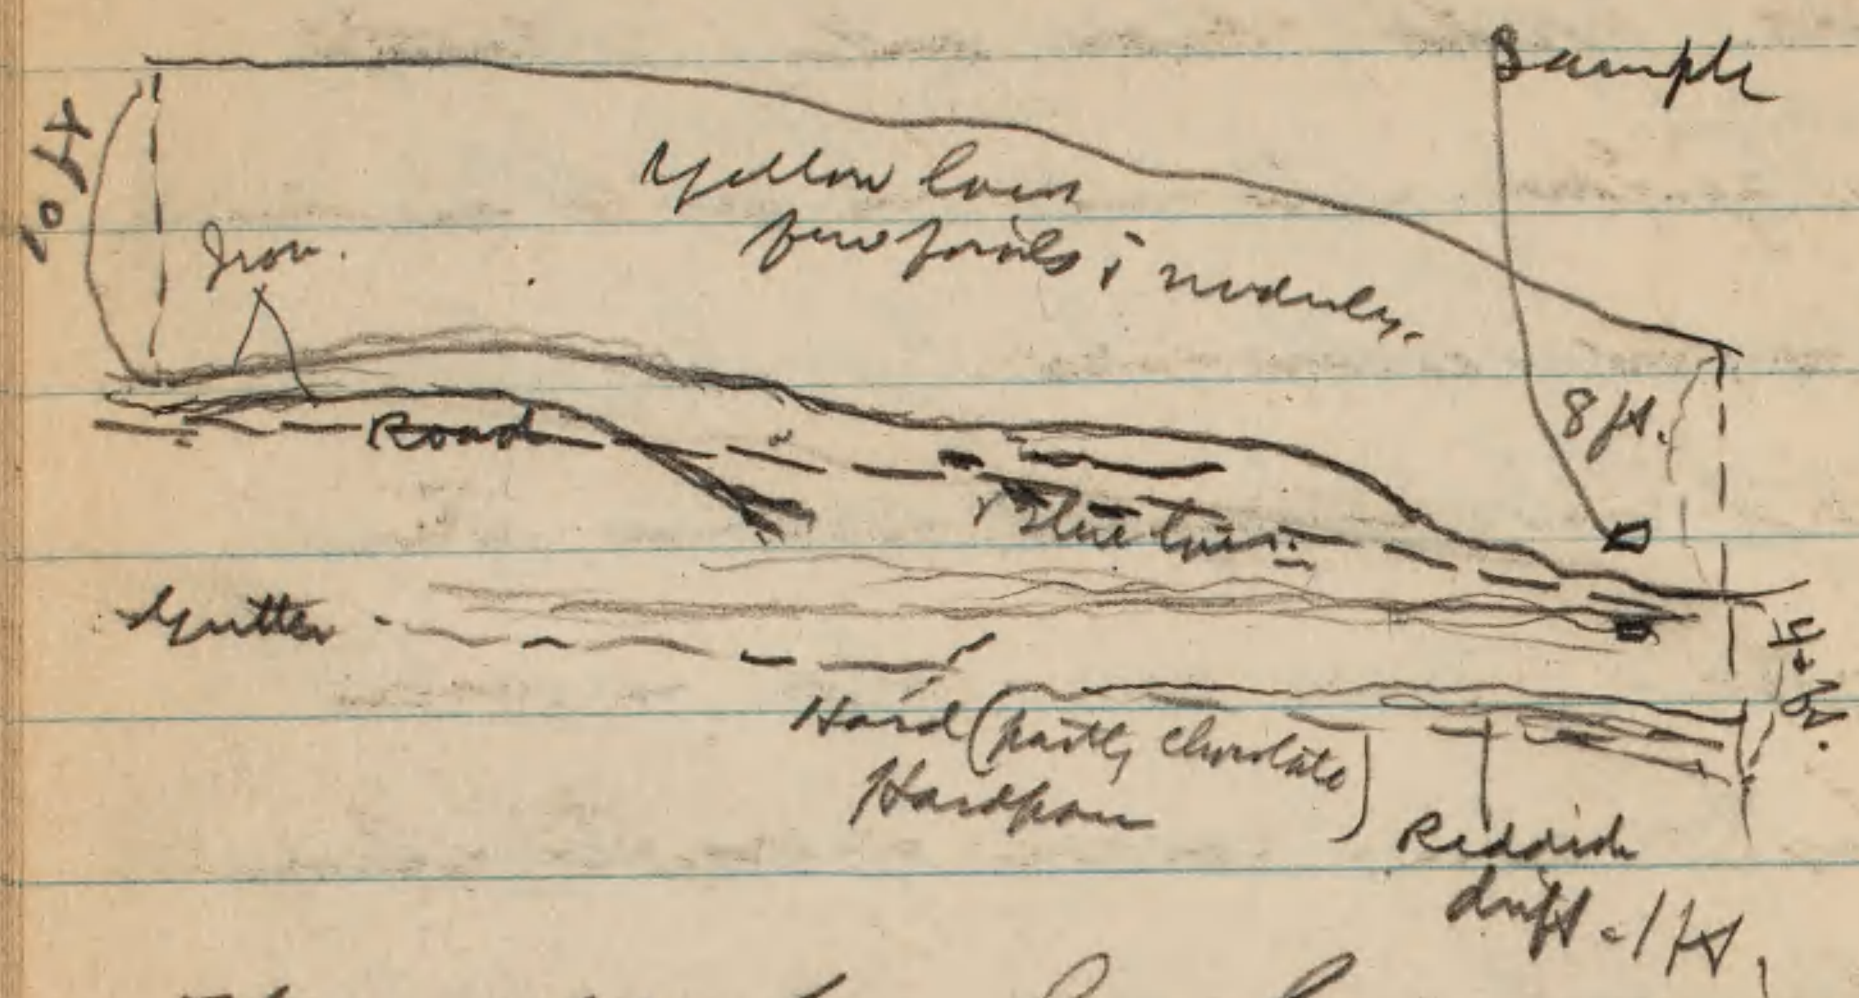 Sample
10 ft
Yellow loess
few fossils & nodules.
Iron.
8 ft.
Road
Blue loess
Gutter
Hard (partly chocolate)
Hardpan
Reddish
drift - 1 ft.